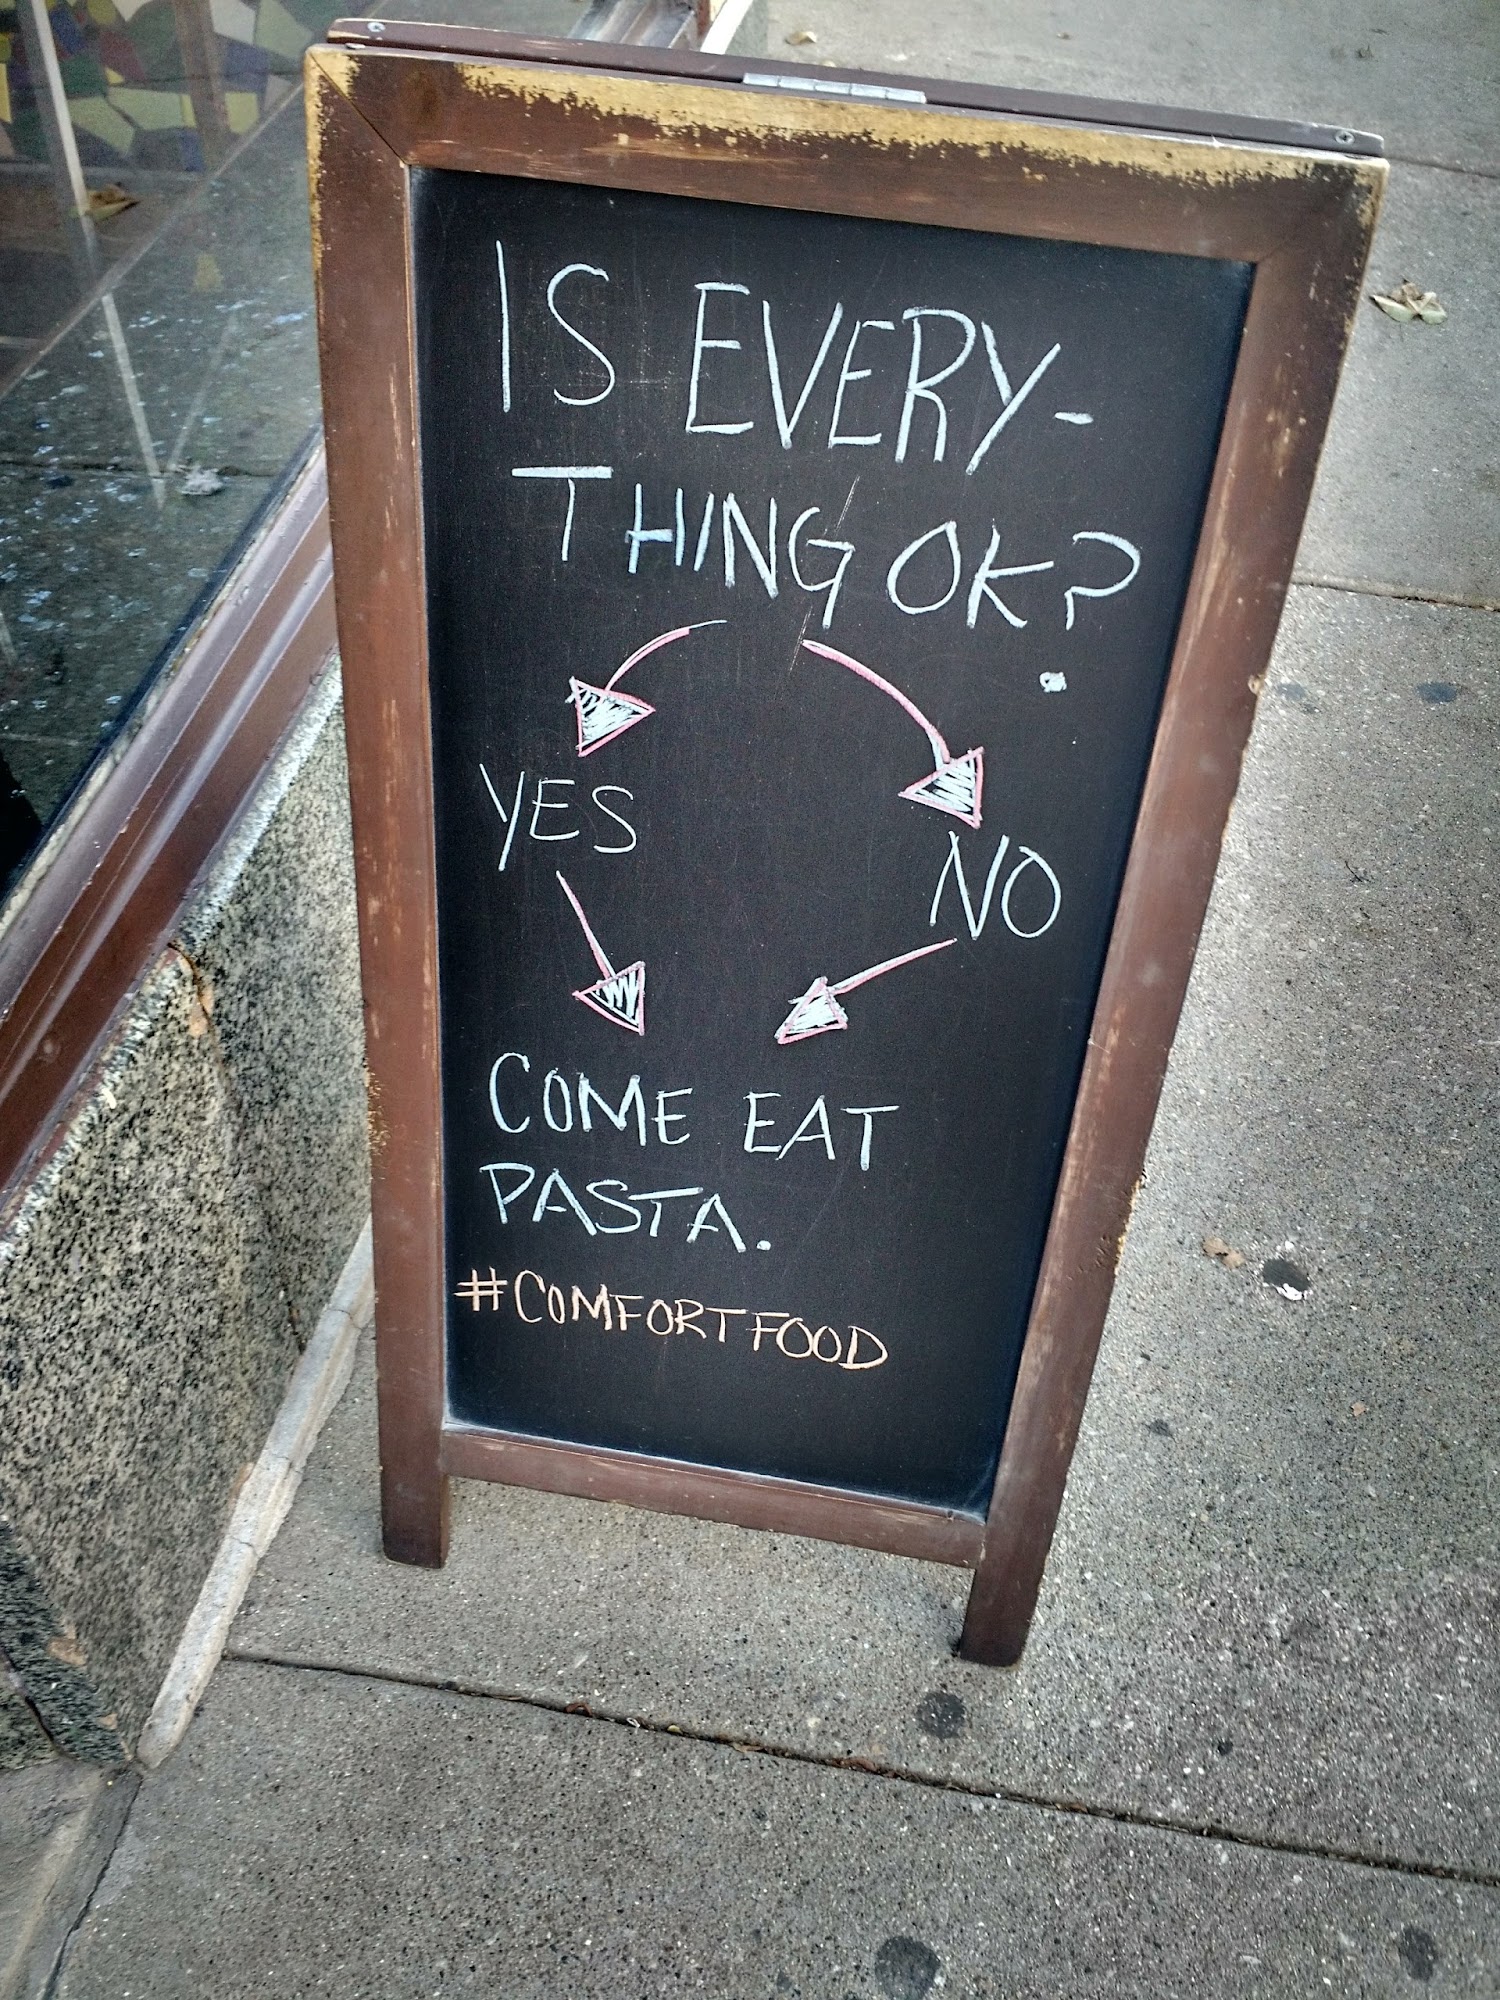 IS EVERY-
THING OK?
YES
NO
COME EAT
PASTA.
#COMFORTFOOD